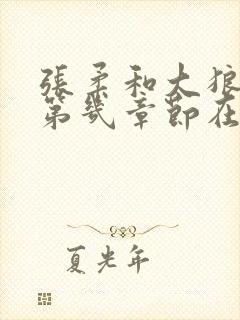 張柔和大狼
第幾章節在
夏光年